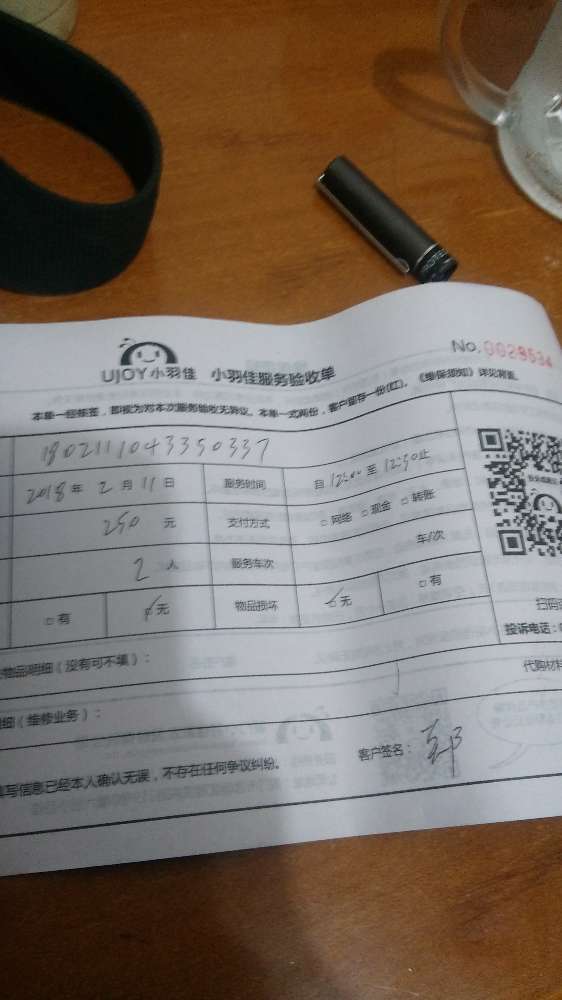 UJOY小羽佳 小羽佳服务验收单 No.0028534
本单一经签签，即视为对本次服务验收无异议。本单一式两份，客户留存一份(红)。《维保须知》详见背面。
180211104335033７
2018年2月11日 服务时间 自12:00至12:30止
250元 支付方式 □网络 □现金 □转账
2人 服务车次 车/次
□有 □无 物品损坏 □无 □有
扫码
投诉电话：
物品明细（没有可不填）： 代购材料
细（维修业务）：
填写信息已经本人确认无误，不存在任何争议纠纷。 客户签名：